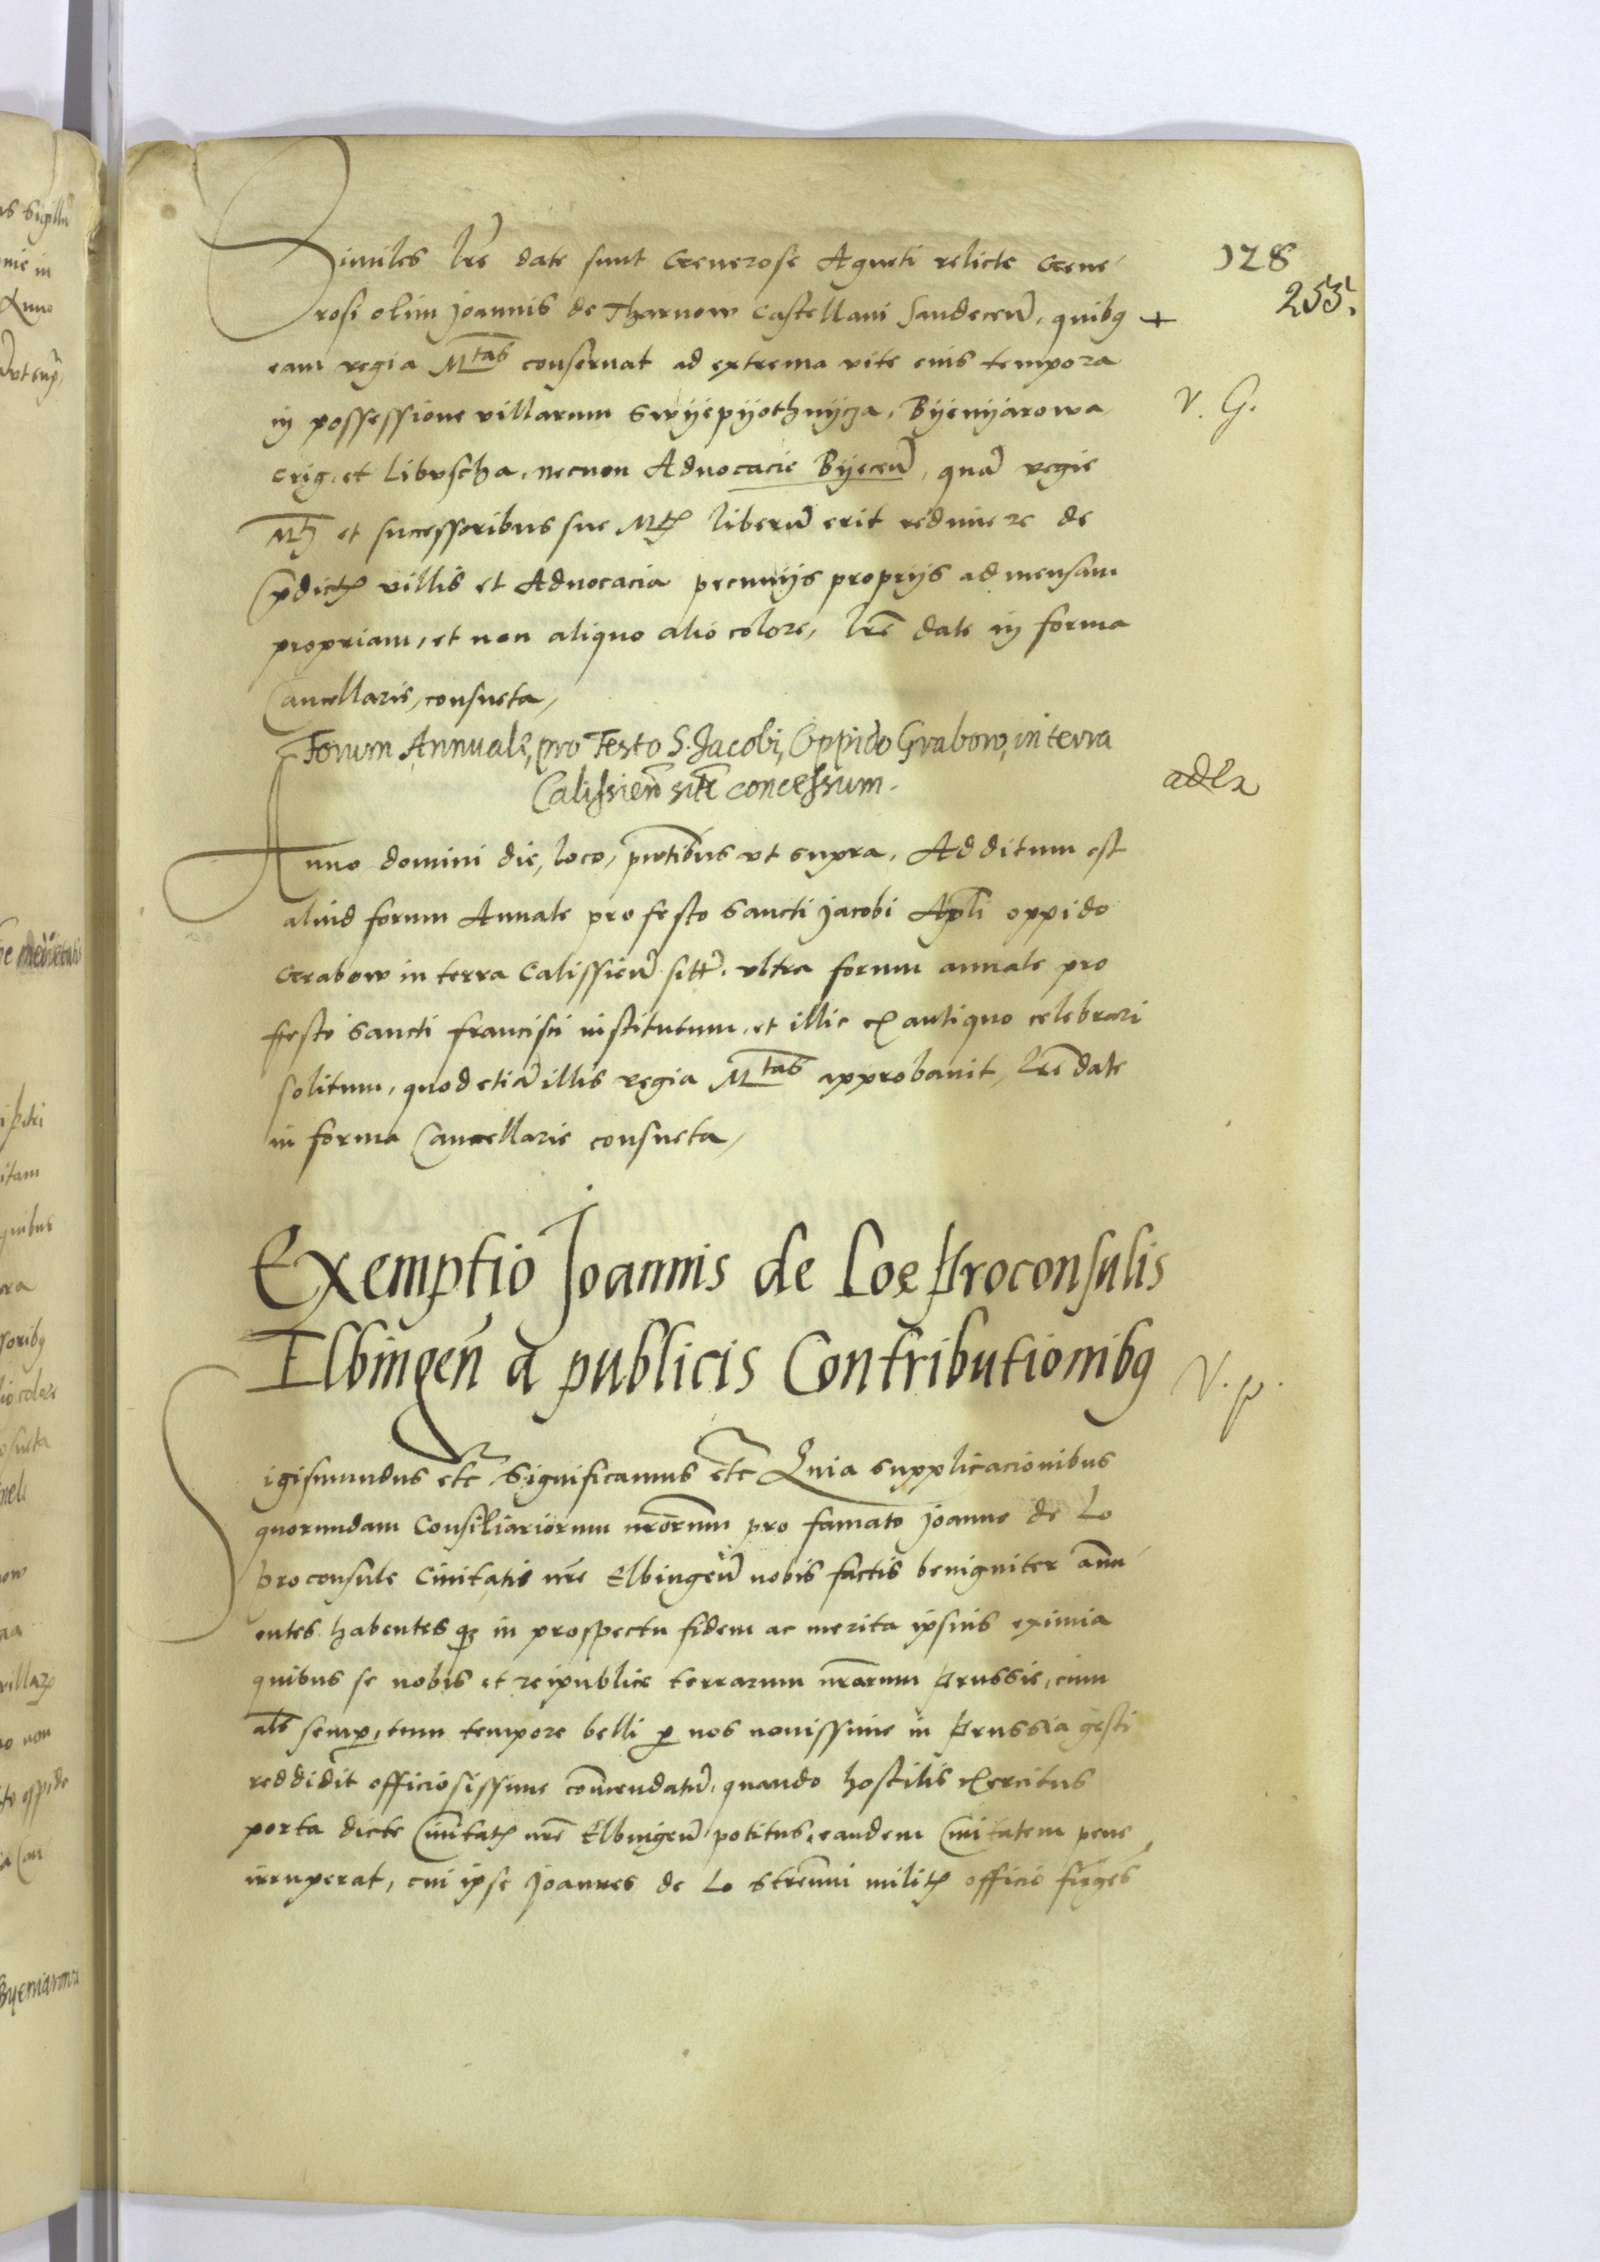 Similes lre date sunt Generose Agneti relicte Gene
rosi olim Joannis de Tharnow Castellani Sandecen, quibus +
eam regia Mtas conservat ad extrema vite eius tempora
in possessione villarum Swyepyothnycza, Byenyarowa
et Libuscha, necnon Advocacie Byecen, qua regie
Mti et successoribus sue Mtis liberu erit redimere de
pdictis villis et Advocacia pecunijs proprijs ad mensam
propriam, et non aliquo alio colore, lre date in forma
Cancellarie, consueta,
Forum Annuale, pro Festo S. Jacobi, Oppido Grabow, in terra
Calissien site concessum.
Anno domini die, loco, pntibus ut supra, Additum est
aliud forum Annale pro festo Sancti Jacobi Apli oppido
Grabow in terra Calissien sitt, ultra forum annale pro
ffesto Sancti Francisci institutum, et illic ex antiquo celebrari
solitum, quod etia illis regia Mtas approbavit, lre date
in forma Cancellarie consueta,
Exemptio Joannis de Loe Proconsulis
Elbingen a publicis Contributionibus
Sigismundus etc Significamus etc Quia supplicacionibus
quorundam Consiliariorum nrorum pro famato Joanne de Lo
proconsule Civitatis nre Elbingen nobis factis benigniter annu
entes habentesque in prospectu fidem ac merita ipsius eximia
quibus se nobis et reipublice terrarum nrarum Prussie, cum
als semper, tum tempore belli per nos novissime in Prussia gesti
reddidit officiosissime comendatu, quando hostilis exercitus
porta dicte Civitatis nre Elbingen potitus, eandem Civitatem pene
irruperat, cui ipse Joannes de Lo strenui militis officio fuges
128
253.
V. G.
adla
V. p.